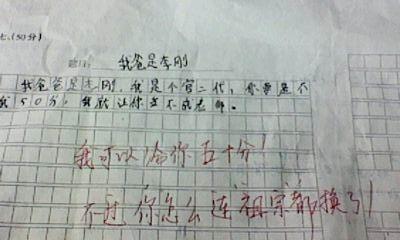 七、(50分)
题目： 我爸是李刚
我爸爸是李刚，我是个官二代，你要是不
我50分，我就让你当不成老师。
我可以给你五十分！
不过你怎么连祖宗都换了！